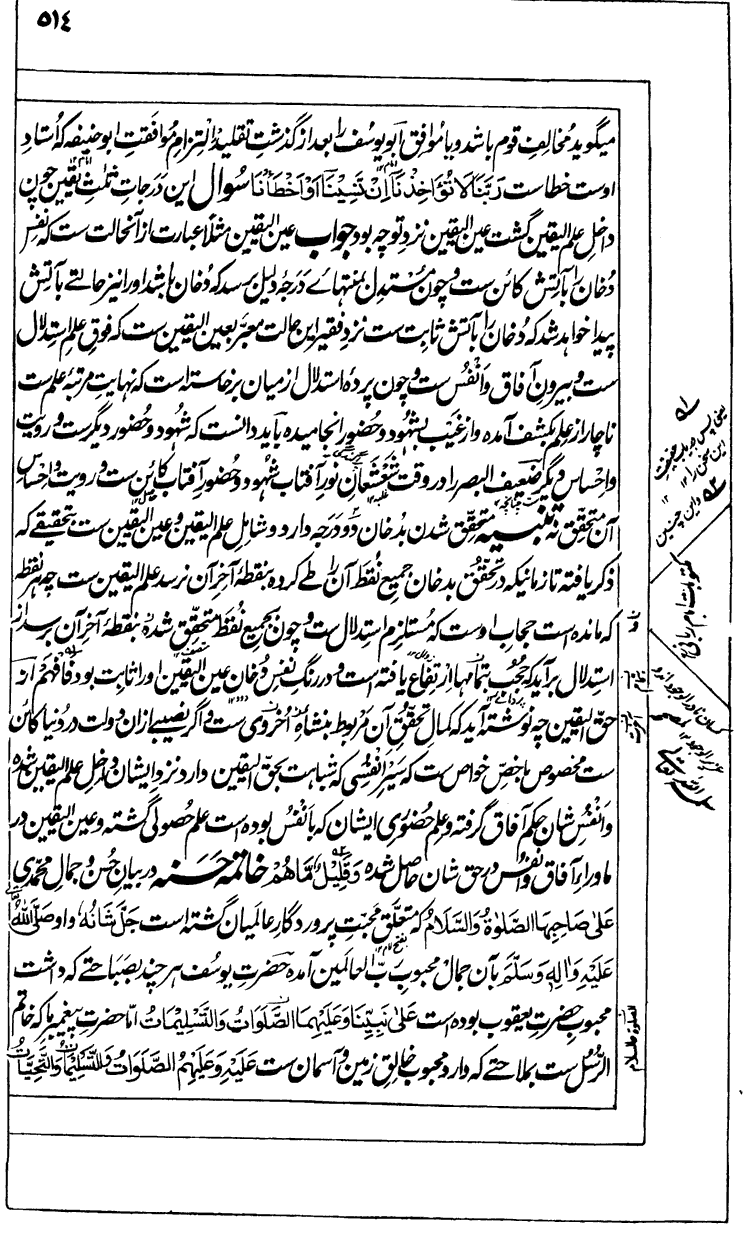 ٥١٤
میگوید مخالف قوم باشد و یا موافق ابو یوسف را بعد از گذشت تقلید التزام موافقت ابو حنیفه که استاد
اوست خطاست رَبَّنَا لَا تُؤَاخِذْنَا اِنْ نَسِیْنَا اَوْ اَخْطَأْنَا سوال این درجات ثلث یقین چون
داخل علم الیقین گشت عین الیقین نزد تو چه بود جواب عین الیقین مثلا عبارت از آنحالت ست که نفس
دخان را بآتش کائن ست و چون مستدل بمنتهاے درجهٔ دلیل رسد که دخان باشد او را نیز حالتے بآتش
پیدا خواهد شد که دخان را بآتش ثابت ست نزد فقیر این حالت معبر بعین الیقین ست که فوق علم استدلال
ست و بیرون آفاق و انفس ست و چون پردهٔ استدلال از میان برخاسته است که نهایت مرتبهٔ علم ست
ناچار از علم بکشف آمده و از غیب بشهود و حضور انجامیده باید دانست که شهود و حضور دیگر ست و رویت
و احساس دیگر ضعیف البصر را در وقت شعشعان نور آفتاب شهود و حضور آفتاب کائن ست و رویت و احساس
آن متحقق نه تنبیه متحقق شدن بدخان دو درجه دارد و شامل علم الیقین و عین الیقین ست بتحقیقے که
ذکر یافته تا زمانیکه در تحقق بدخان جمیع نقط آن را طے کرده بنقطهٔ آخر آن نرسد علم الیقین ست چه هر نقطه
که مانده است حجاب اوست که مستلزم استدلال ست و چون بجمیع نقط متحقق شده بنقطهٔ آخر آن برسد از
استدلال برآید که حجب بتمامها ارتفاع یافته است و در رنگ نفس دخان عین الیقین او را ثابت بود فافهم از
حق الیقین چه نوشته آید که کمال تحقق آن مربوط بنشاهٔ اخروی ست و اگر نصیبے از ان دولت در دنیا کائن
ست مخصوص باخص خواص ست که سیر انفسی که شباهت بحق الیقین دارد نزد ایشان داخل علم الیقین شده
و انفس شان حکم آفاق گرفته و علم حضوری ایشان که بانفس بوده است علم حصولی گشته و عین الیقین در
ماوراء آفاق و انفس در حق شان حاصل شده وَقَلِیْلٌ مَّا هُمْ خاتمه حسنه در بیان حسن و جمال محمدی
عَلٰی صَاحِبِهَا الصَّلٰوةُ وَالسَّلَامُ که متعلق محبت پروردگار عالمیان گشته است جَلَّ شَانُهٗ و او صَلَّی اللهُ
عَلَیْهِ وَاٰلِهٖ وَسَلَّمَ بآن جمال محبوب رب العالمین آمده حضرت یوسف هر چند بصباحتے که داشت
محبوب حضرت یعقوب بوده است عَلٰی نَبِیِّنَا وَعَلَیْهِمَا الصَّلَوَاتُ وَالتَّسْلِیْمَاتُ اما حضرت پیغمبر ما که خاتم
الرسل ست بملاحتے که دارد محبوب خالق زمین و آسمان ست عَلَیْهِ وَعَلَیْهِمُ الصَّلَوَاتُ وَالتَّسْلِیْمَاتُ وَالتَّحِیَّاتُ
مکتوبات امام ربانی